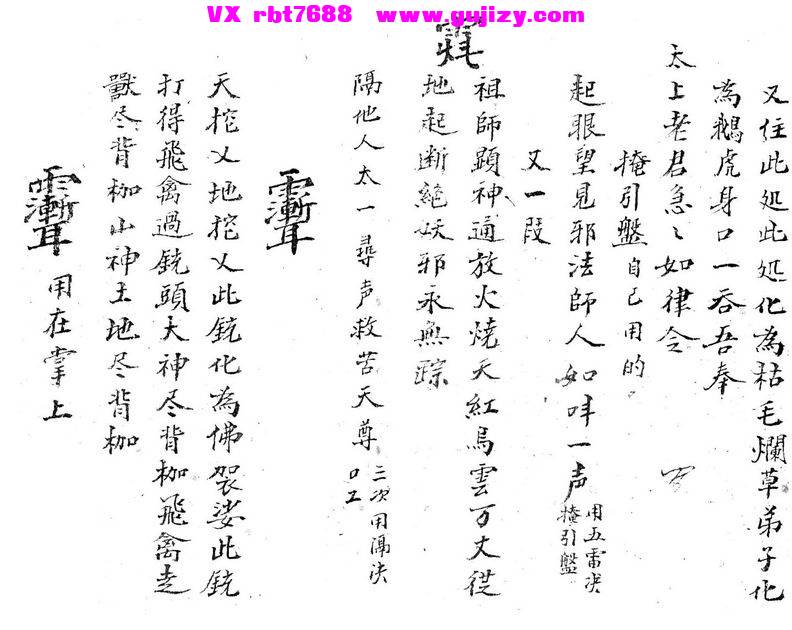 VX rbt7688 www.gujizy.com
又往此処此処化為枯毛爛草弟子化
為鵝虎身口一吞吾奉
太上老君急〻如律令
掩引盤自己用的。
起眼望見邪法師人如咩一声用五雷决掩引盤
又一段
祖師顕神通放火燒天紅烏雲万丈従
地起断絶妖邪永無踪
隔他人太一尋声救苦天尊三次用隔决
天挖乂地挖乂此銃化為佛袈娑此銃
打得飛禽過銃頭大神尽背枷飛禽走
獸尽背枷山神土地尽背枷
用在掌上